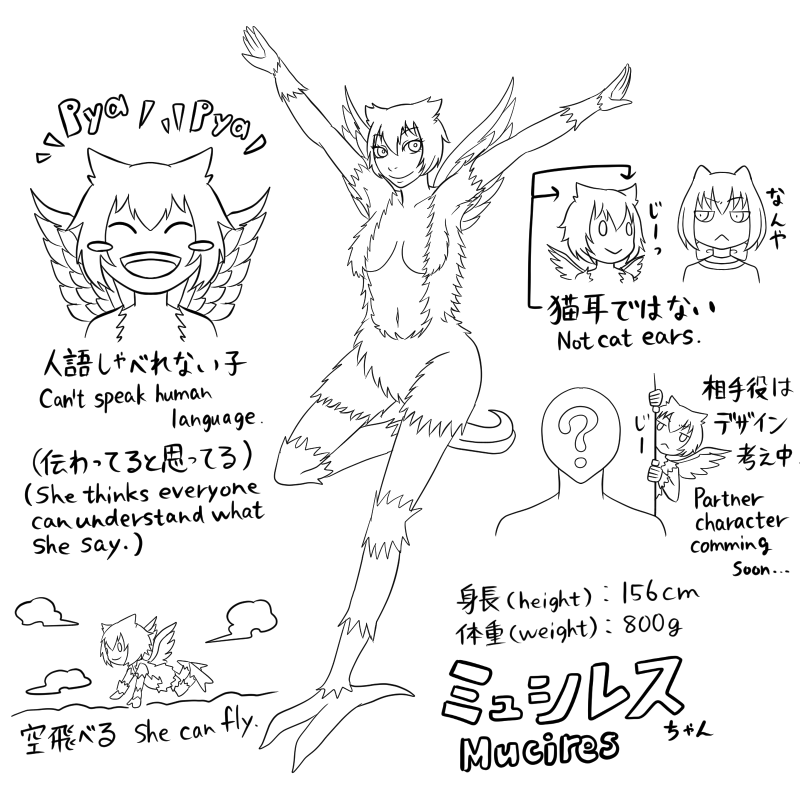 Pya
Pya
人語しゃべれない子
Can't speak human
language.
(伝わってると思ってる)
(She thinks everyone
can understand what
she say.)
空飛べる She can fly.
じーっ
なんや
猫耳ではない
Not cat ears.
?
じー
相手役は
デザイン
考え中.
Partner
character
comming
soon...
身長(height):156cm
体重(weight):800g
ミュシルス
ちゃん
Mucires